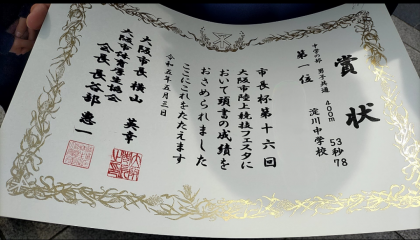 賞状
中学の部 男子共通 400m 53秒78
第一位 淀川中学校
市長杯第十六回
大阪市陸上競技フェスタに
おいて頭書の成績を
おさめられました
ここにこれをたたえます
令和五年五月三日
大阪市長 横山英幸
大阪市体育厚生協会
会長 長谷部惠一